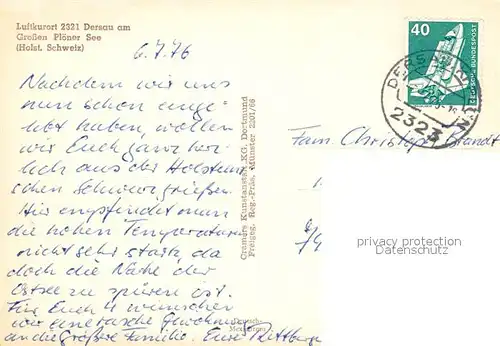 Luftkurort 2321 Dersau am
Großen Plöner See
(Holst. Schweiz)
6.7.76
Nachdem wir uns
nun schon einge-
lebt haben, wollen
wir Euch ganz herz-
lich aus der Holsteini-
schen Schweiz grüßen.
Hier empfindet man
die hohen Temperaturen
nicht sehr stark, da
doch die Nähe der
Ostsee zu spüren ist.
Für Euch 4 wünschen
wir eine rasche Gewöhnung
an die größere Familie. Eure
Cramers Kunstanstalt KG, Dortmund
Freigeg. Reg.-Präs. Münster
40
DEUTSCHE BUNDESPOST
DERSAU
2323
Fam. Christoph Brandt
privacy protection
By AnsichtskartenVersand.com